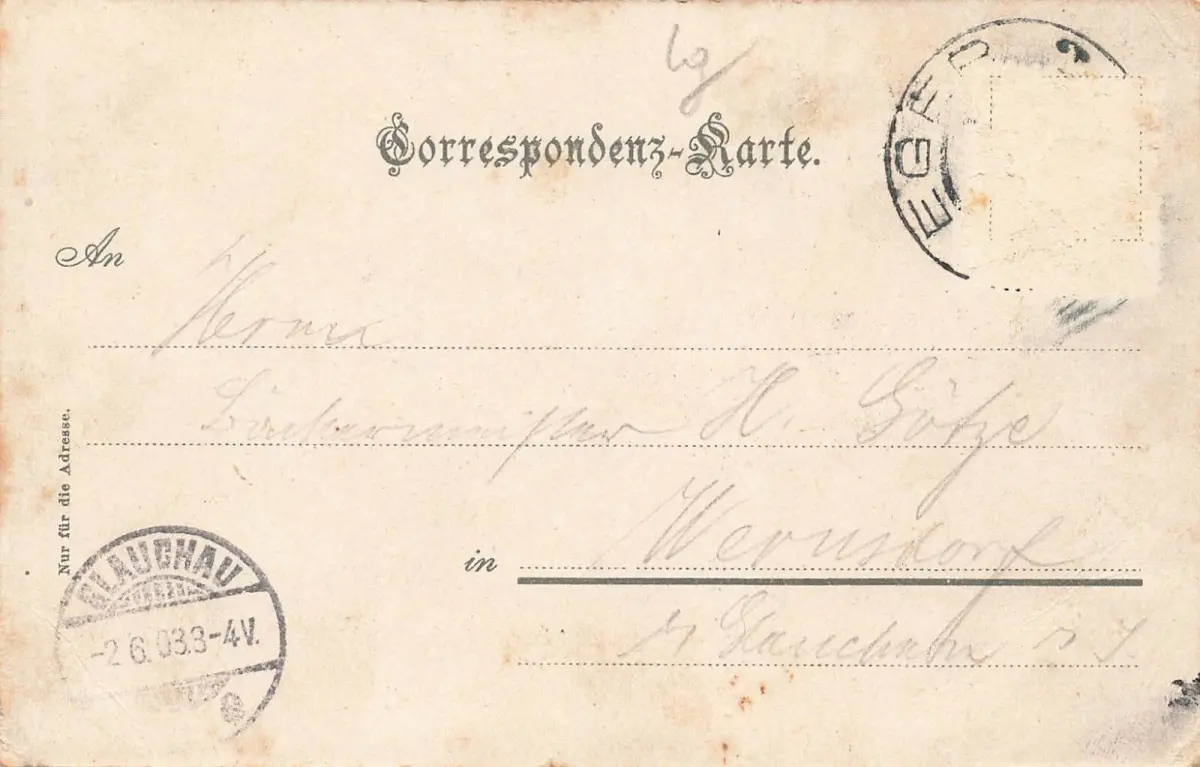 lg
Correspondenz-Karte.
EGER
An
Herrn
Bäckermeister H. Götze
Nur für die Adresse.
in Wernsdorf
Glauchau i. S.
GLAUCHAU
-2.6.03.3-4V.